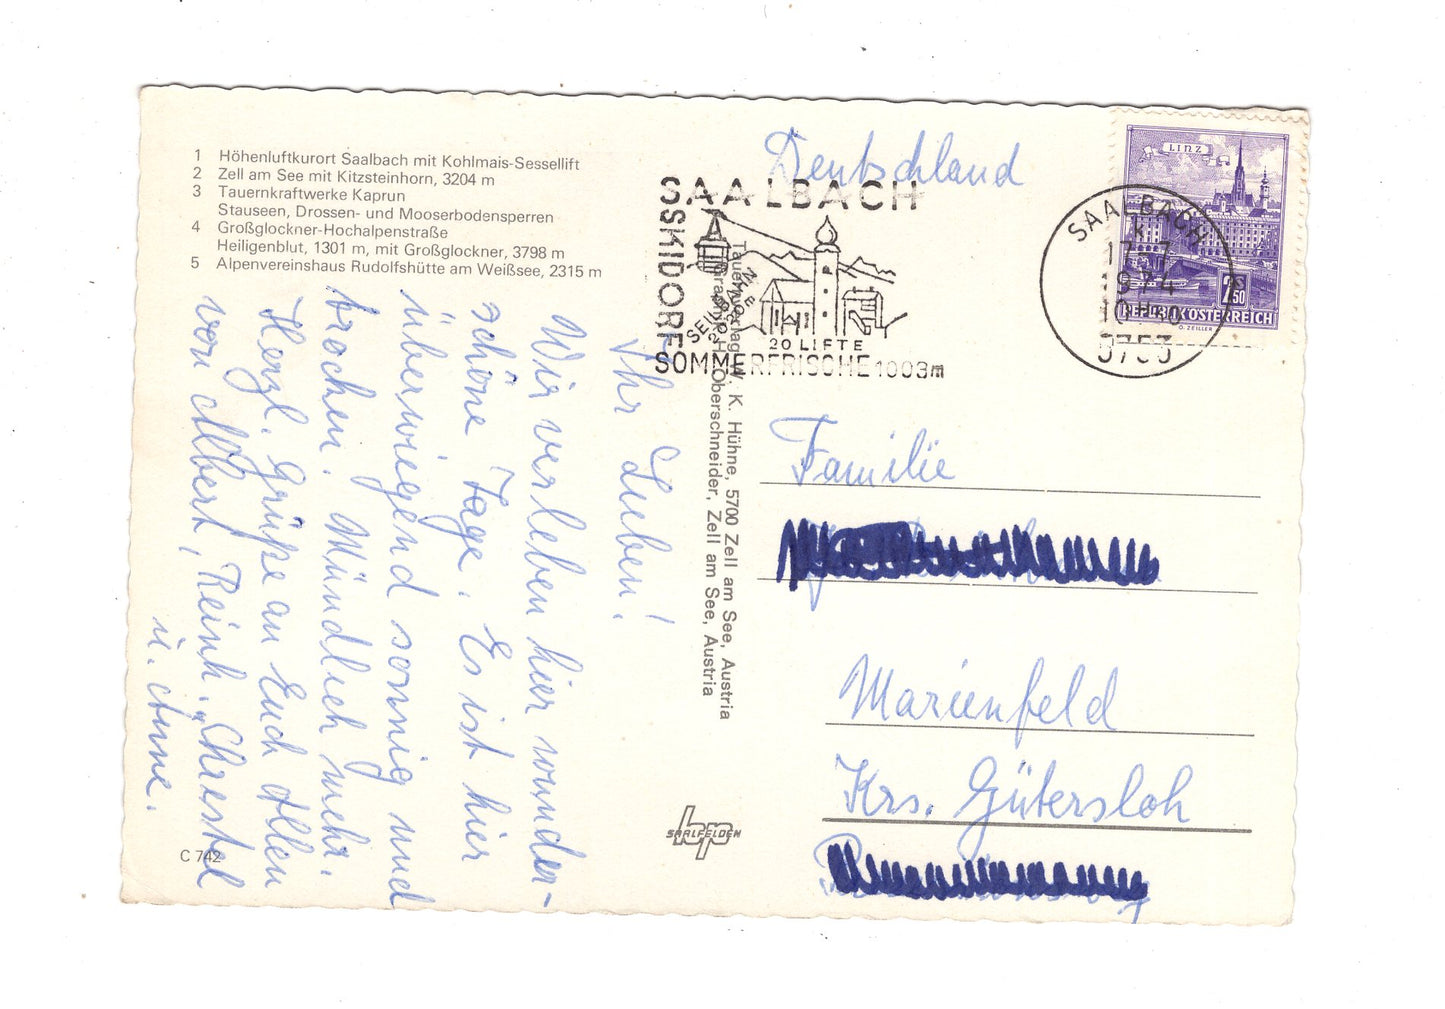 1 Höhenluftkurort Saalbach mit Kohlmais-Sessellift
2 Zell am See mit Kitzsteinhorn, 3204 m
3 Tauernkraftwerke Kaprun
Stauseen, Drossen- und Mooserbodensperren
4 Großglockner-Hochalpenstraße
Heiligenblut, 1301 m, mit Großglockner, 3798 m
5 Alpenvereinshaus Rudolfshütte am Weißsee, 2315 m
Ihr Lieben!
Wir verleben hier wunder-
schöne Tage. Es ist hier
überwiegend sonnig und
trocken. Mündlich mehr.
Herzl. Grüße an Euch Allen
von Albert, Reinh., Christel
u. Anne.
C 742
Tauernverlag W. K. Hühne, 5700 Zell am See, Austria
Oberschneider, Zell am See, Austria
SAALFELDEN
SAALBACH
SKIDORF
20 LIFTE
SOMMERFRISCHE 1003m
Deutschland
LINZ
REPUBLIK ÖSTERREICH
SAALBACH
17.7.
1974
5753
Familie
Marienfeld
Krs. Gütersloh